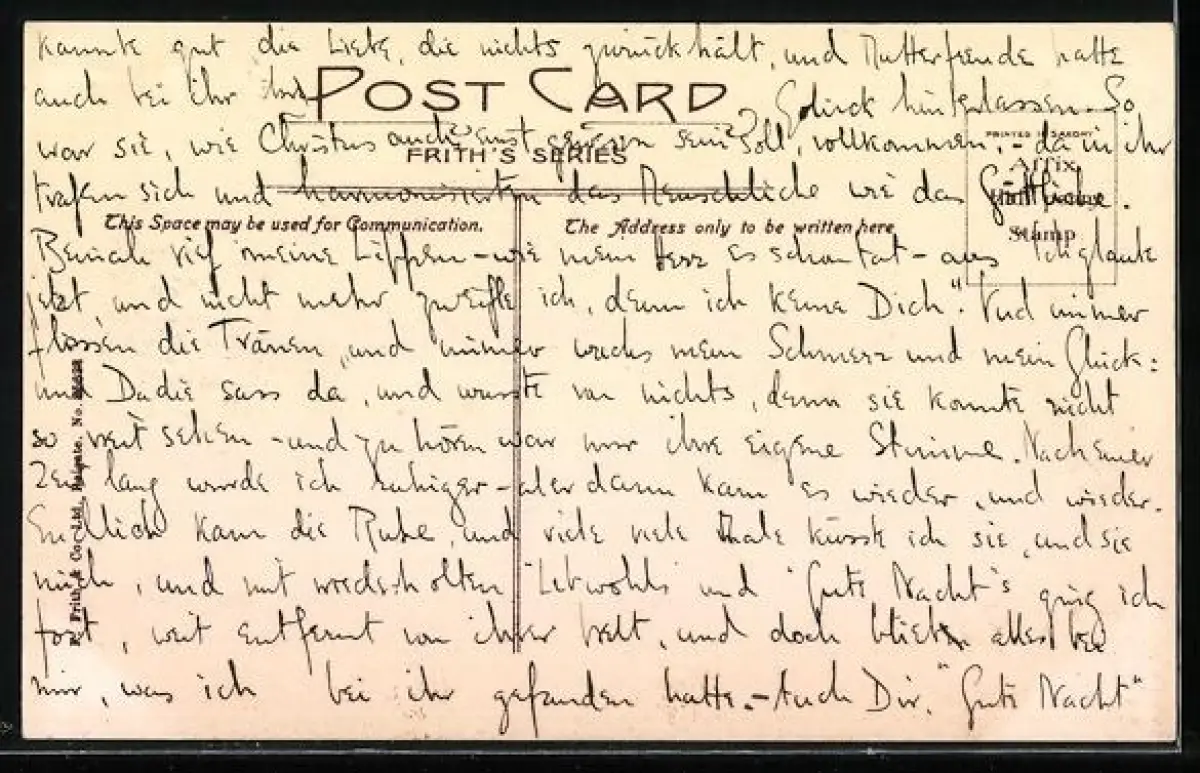 kannte gut die Liebe, die nichts zurückhält, und Mutterfreude hatte
auch bei ihr hinterlassen. So
POST CARD
war sie, wie Christus auch einst gewesen sein soll, vollkommen, - da in ihr
PRINTED IN SAXONY
FRITH'S SERIES
Affix
Stamp
trafen sich und harmonisierten das Menschliche wie das Göttliche.
This Space may be used for Communication.
The Address only to be written here
Beinah rief meine Lippen - wie mein Herz es schon tat - aus "Ich glaube
jetzt, und nicht mehr zweifle ich, denn ich kenne Dich". Und immer
flossen die Tränen, und immer wuchs mein Schmerz und mein Glück:
und Dadie sass da, und wusste von nichts, denn sie konnte nicht
so weit sehen - und zu hören war nur ihre eigene Stimme. Nach einer
Zeit lang wurde ich ruhiger - aber dann kam es wieder, und wieder.
Endlich kam die Ruhe, und viele viele Male küsste ich sie, und sie
mich, und mit wiederholten 'Lebwohls' und 'Gute Nacht's ging ich
fort, weit entfernt von ihrer Welt, und doch blieb alles bei
mir, was ich bei ihr gefunden hatte. - Auch Dir, "Gute Nacht"
F. Frith & Co. Ltd., Reigate. No.